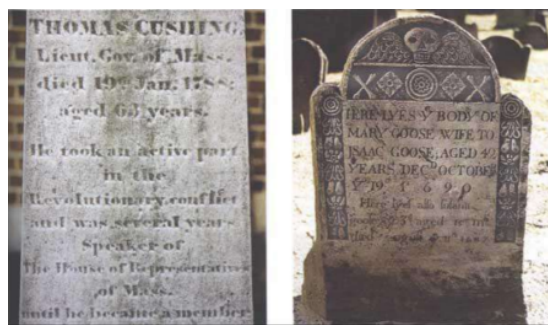 THOMAS CUSHING,
Lieut. Gov. of Mass.
died 19th Jan. 1788;
aged 63 years.
He took an active part
in the
Revolutionary conflict
and was several years
Speaker of
The House of Representatives
of Mass.
until he became a member
HERE LYES Yᵉ BODY OF
MARY GOOSE WIFE TO
ISAAC GOOSE, AGED 42
YEARS DECᴰ OCTOBER
Yᵉ 19ᵗʰ 1690
Here lyes also
goose